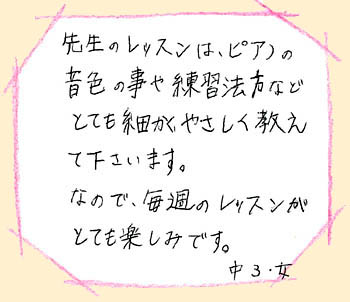 先生のレッスンは、ピアノの
音色の事や練習法方など
とても細かく、やさしく教え
て下さいます。
なので、毎週のレッスンが
とても楽しみです。
中3・女